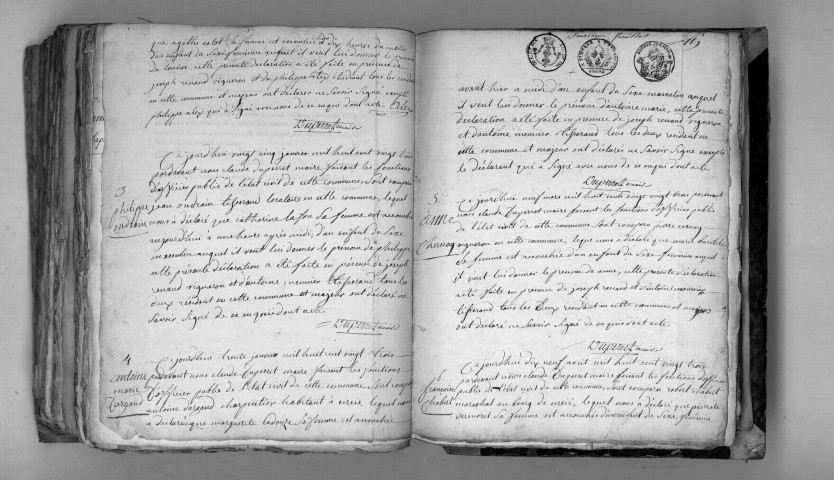 que agathe celot sa femme est accouchée a dix heures du matin
d'un enfant du sexe feminin auquel il veut lui donner le prénom
de louise cette presente declaration a été faite en presence de
joseph renaud vigneron et de philippe alex étudiant tous les
en cette commune et majeur ont déclaré ne savoir signé excepté
philippe alex qui a signé avec nous de ce enquis dont acte Alex
Duperret maire
3
philippe
ondrain
Ce jourd'hui vingt cinq janvier mil huit cent vingt trois
pardevant nous claude duperret maire faisant les fonctions
d'officier public de l'état civil de cette commune, sont comparu
jean ondrain tisserand locataire en cette commune, lequel
nous a déclaré que catherine la fon sa femme est accouchée
aujourd'hui a une heure après midi, d'un enfant du sexe
masculin auquel il veut lui donner le prénom de philippe
cette présente déclaration a été faite en présence de joseph
renaud vigneron et d'antoine meunier tisserand tous les
deux residant en cette commune et majeur ont déclaré ne
savoir signé de ce enquis dont acte
Duperret maire
4
antoine
marie
Ce jourd'hui trente janvier mil huit cent vingt trois
pardevant nous claude duperret maire faisant les fonctions
d'officier public de l'état civil de cette commune Sont comparu
antoine charpentier habitant a lequel nous
a déclaré que marguerite sa femme est accouchée
avant hier a midi d'un enfant du sexe masculin auquel
il veut lui donner le prénom d'antoine marie, cette presente
declaration a été faite en presence de joseph renaud vigneron
et d'antoine meunier tisserand tous les deux residant en
cette commune et majeur ont déclaré ne savoir signé excepté
le déclarant qui a signé avec nous de ce enquis dont acte
Duperret maire
5
anne
Ce jourd'hui neuf mars mil huit cent vingt trois pardevant
nous claude Duperret maire faisant les fonctions d'officier public
de l'état civil de cette commune sont comparu pierre
vigneron en cette commune, lequel nous a déclaré que marie
sa femme est accouchée d'un enfant du sexe feminin auquel
il veut lui donner le prénom de anne, cette présente déclaration
a été faite en presence de joseph renaud et d'antoine meunier
tisserand tous les deux residant en cette commune et majeur
ont déclaré ne savoir signé de ce enquis dont acte.
Duperret maire
6
françoise
chabert
Ce jourd'hui dix neuf avril mil huit cent vingt trois
pardevant nous claude Duperret maire faisant les fonctions d'officier
public de l'état civil de cette commune, sont comparu robert chabert
marechal au bourg de lequel nous a déclaré que
sa femme est accouchée d'un enfant du sexe feminin